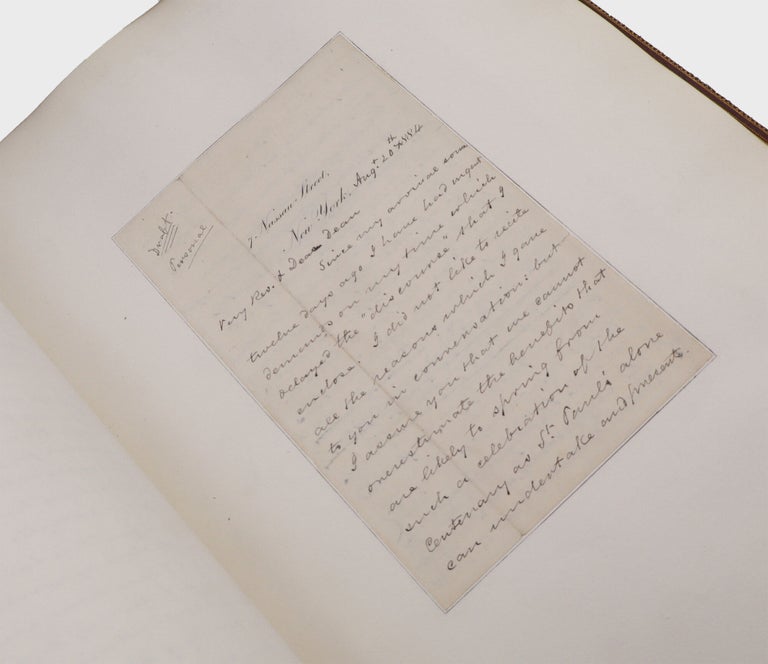 Draft.
Personal
7. Nassau Street.
New York, Augt. 20th 1884
Very Rev. & Dear Dean
Since my arrival some
twelve days ago I have had urgent
demands on my time which
delayed the "discourse" that I
enclose. I did not like to recite
all the reasons which I gave
to you in conversation: but
I assure you that we cannot
overestimate the benefits that
are likely to spring from
such a celebration of the
Centenary as St. Paul's alone
can undertake and present.